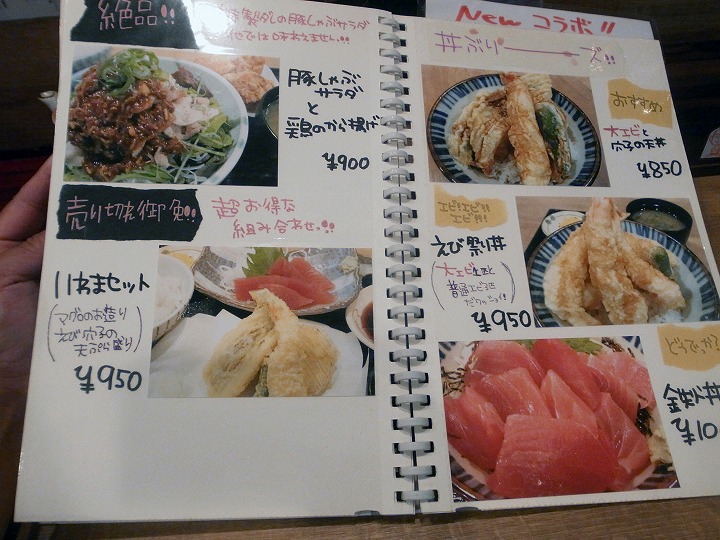 絶品!!
製ダシの豚しゃぶサラダ
他では味わえません!!
豚しゃぶ
サラダ
と
鶏のから揚げ
¥900
売り切れ御免!!
超お得な
組み合わせ!!
いわまセット
(マグロのお造り
えび穴子の
天ぷら盛り)
¥950
NEW コラボ!!
丼ぶりーズ!!
おすすめ
大エビと
穴子の天丼
¥850
エビ!エビ!!
エビ!!!
えび祭り丼
(大エビ1匹と
普通エビ3匹
だワッショイ!!)
¥950
どうでっか?
鉄火丼
¥10